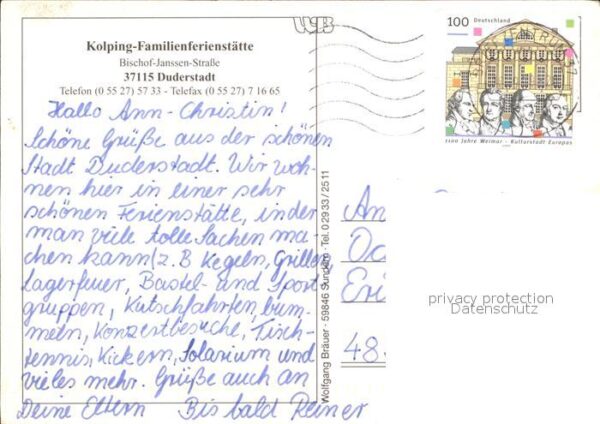 Kolping-Familienferienstätte
Bischof-Janssen-Straße
37115 Duderstadt
Telefon (0 55 27) 57 33 - Telefax (0 55 27) 7 16 65
Hallo Ann-Christin!
Schöne Grüße aus der schönen
Stadt Duderstadt. Wir woh-
nen hier in einer sehr
schönen Ferienstätte, in der
man viele tolle Sachen ma-
chen kann (z.B Kegeln, Grillen
Lagerfeuer, Bastel- und Sport
gruppen, Kutschfahrten, bum-
meln, Konzertbesuche, Tisch-
tennis, Kickern, Solarium und
vieles mehr. Grüße auch an
Deine Eltern Bis bald Reiner
Wolfgang Bräuer - 59846 Sundern - Tel. 0 29 33 / 25 11
100 Deutschland
1100 Jahre Weimar - Kulturstadt Europas
An
Oc
Eri
48
privacy protection
Datenschutz